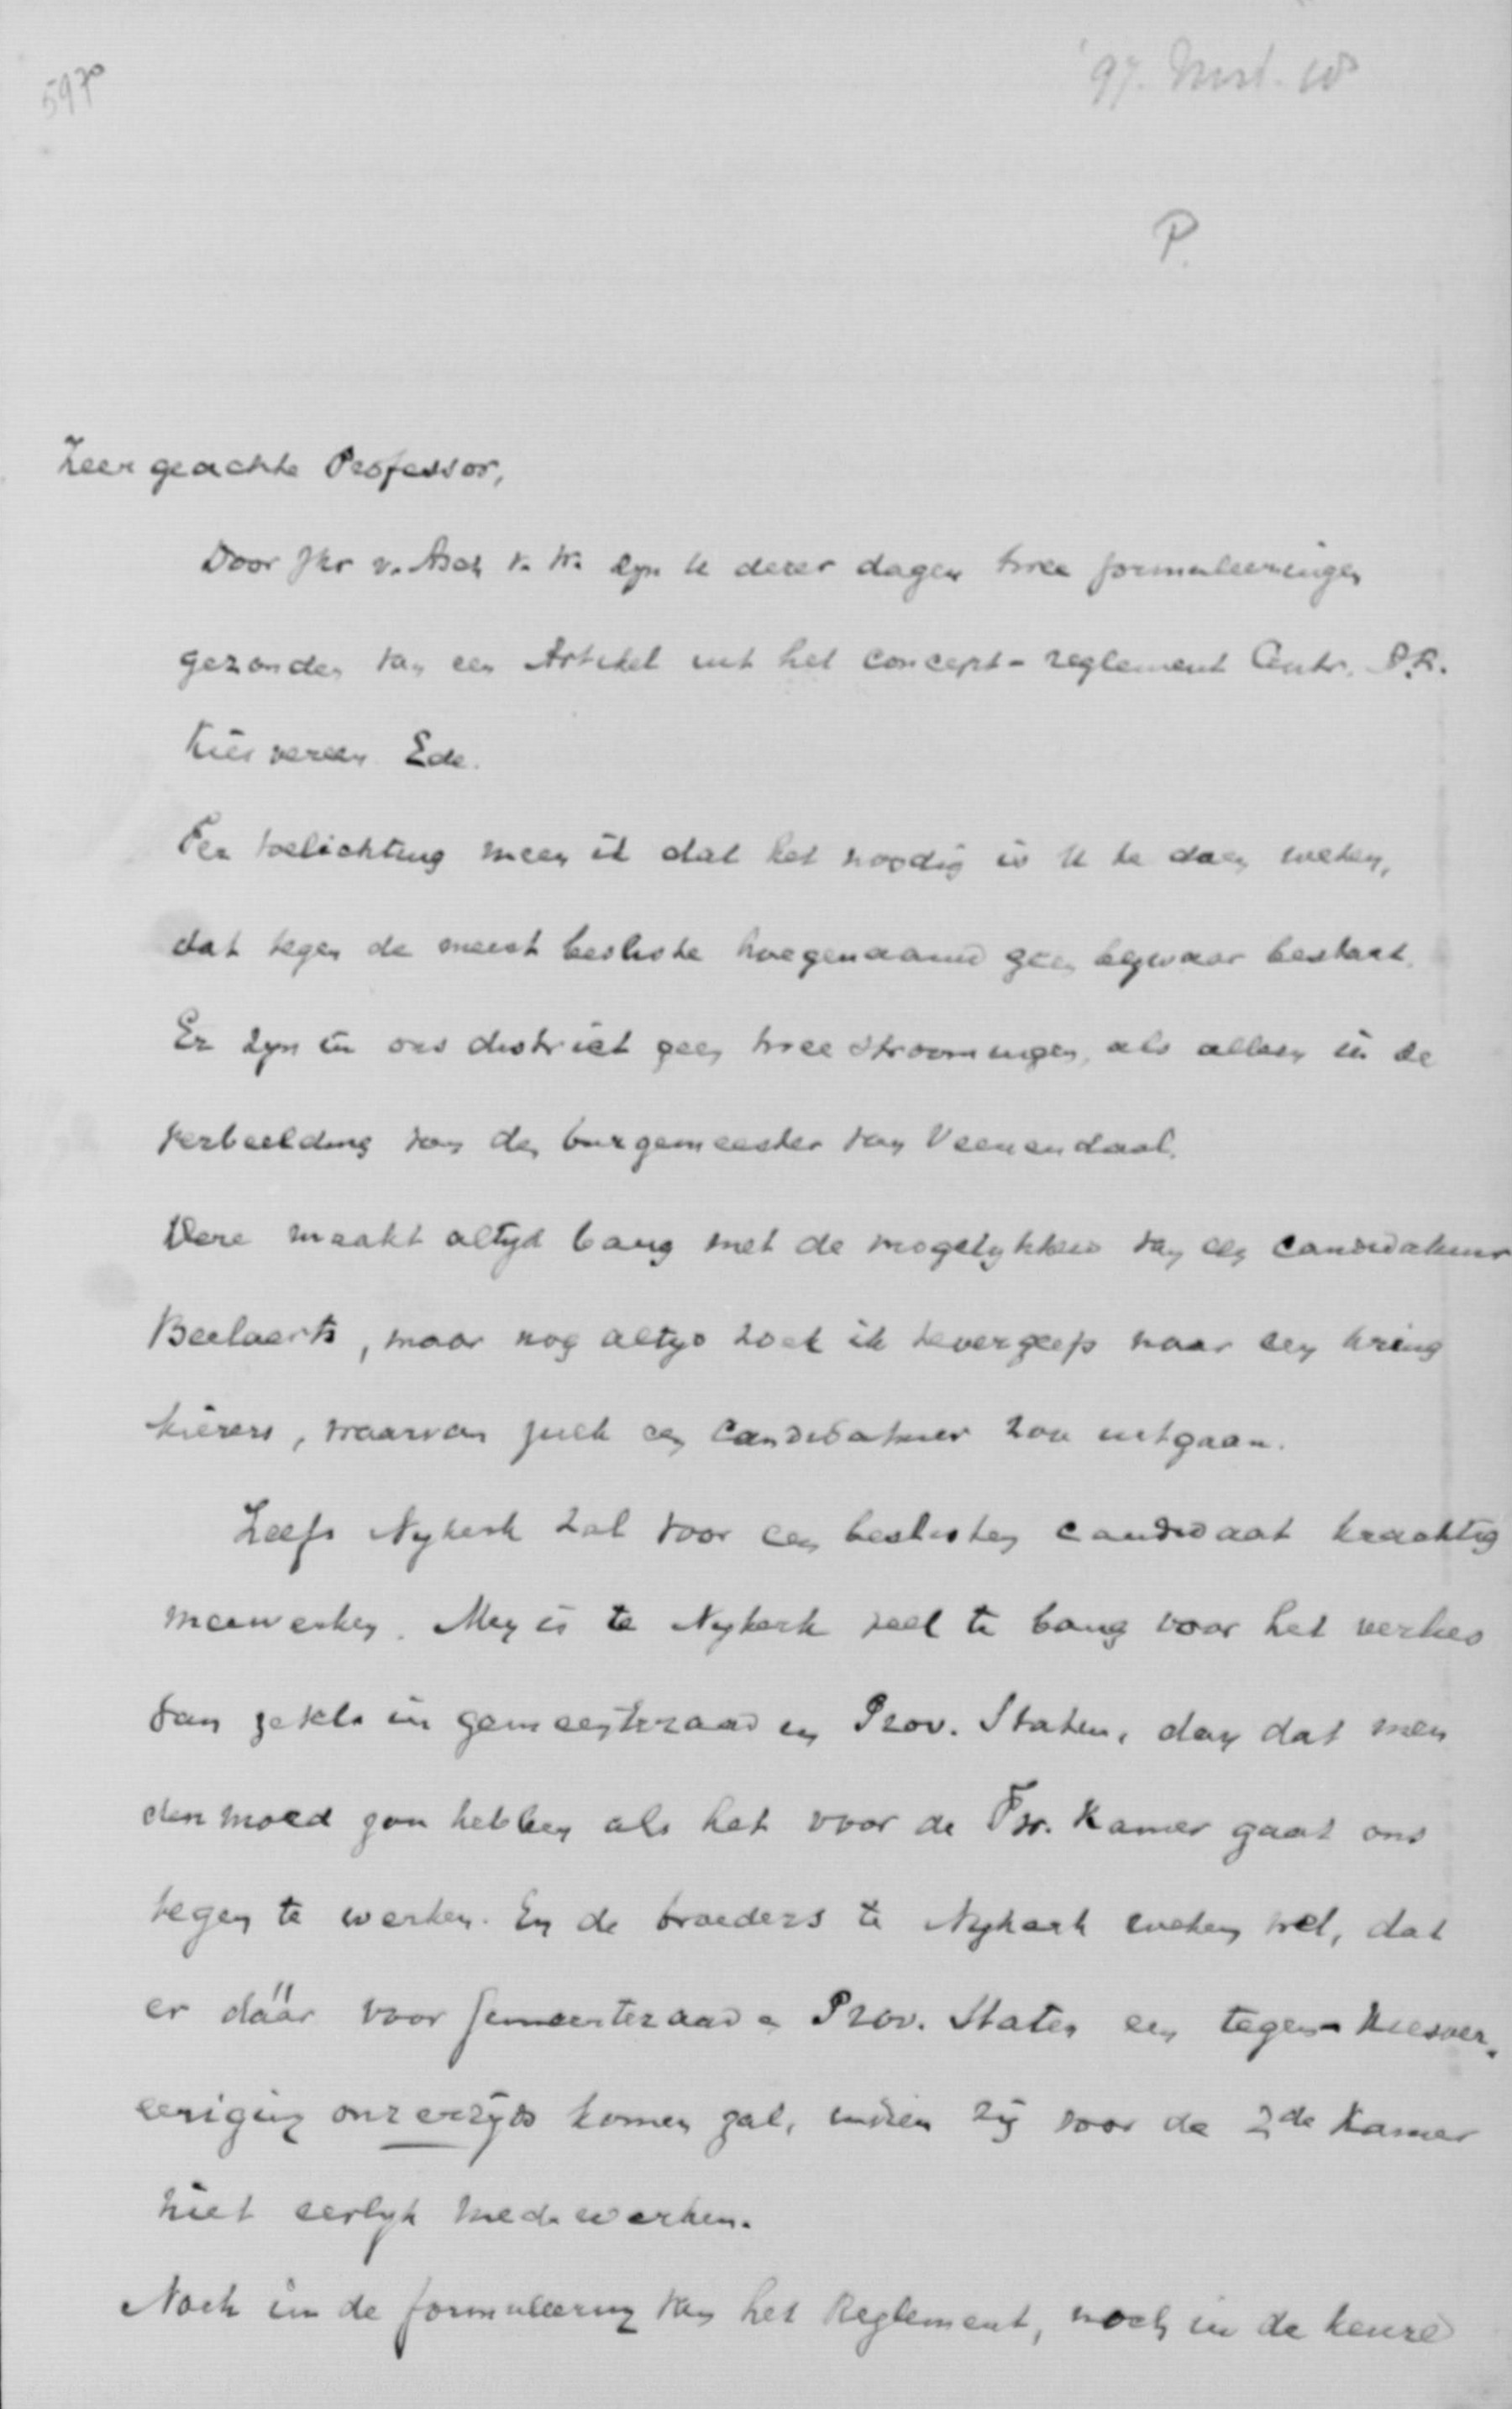 5970
'97. Mrt. 10
P.
Zeer geachte Professor,
Door Jhr v. Asch v. W. zyn U dezer dagen twee formuleeringen
gezonden van een Artikel uit het concept-reglement Centr. A.R.
Kiesvereen Ede.
Ter toelichting meen ik dat het noodig is U te doen weten,
dat tegen de meest besliste hoegenaamd geen bezwaar bestaat.
Er zyn in ons district geen twee stroomingen, als alleen in de
verbeelding van den burgemeester van Veenendaal.
Deze maakt altyd bang met de mogelykheid van een candidatuur
Beelaerts, maar nog altyd zoek ik tevergeefs naar een kring
kiezers, waarvan zulk een candidatuur zou uitgaan.
Zelfs Nykerk zal voor een beslisten candidaat krachtig
meewerken. Men is te Nykerk veel te bang voor het verlies
van zetels in gemeenteraad en Prov. Staten, dan dat men
den moed zou hebben als het voor de Tw. Kamer gaat ons
tegen te werken. En de broeders te Nykerk weten wel, dat
er dáár voor Gemeenteraad & Prov. Staten een tegen-Kiesver-
eeniging onzerzyds komen zal, indien zij voor de 2de Kamer
niet eerlyk medewerken.
Noch in de formuleering van het Reglement, noch in de keuze